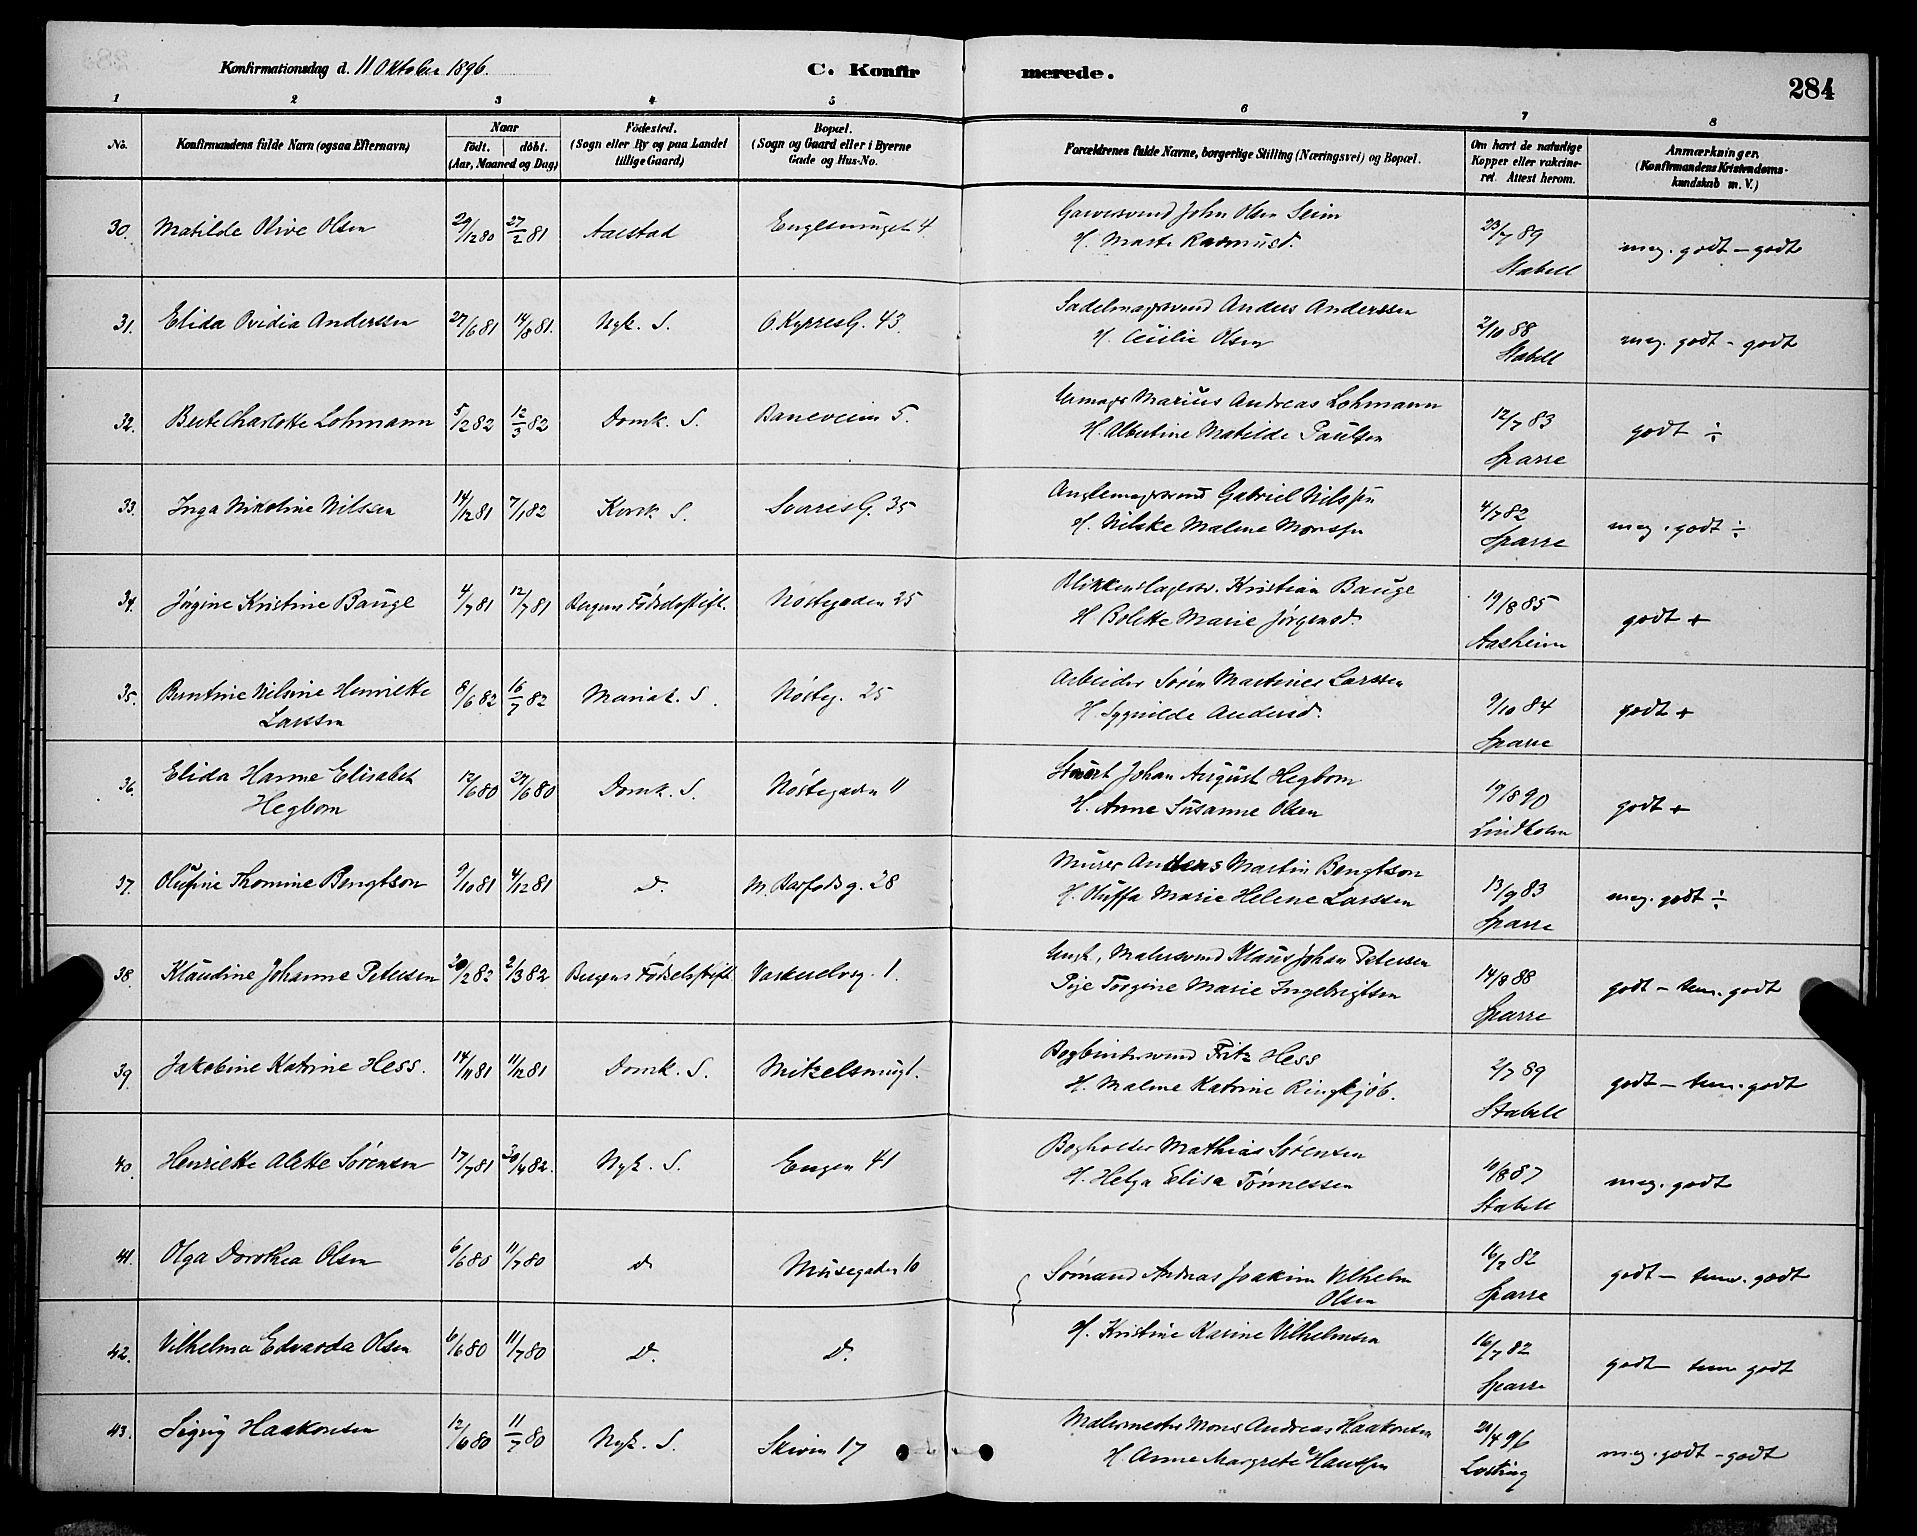 Konfirmationsdag d. 11 Oktober 1896.
C. Konfirmerede.
284
1 2 3 4 5 6 7 8
No.
Konfirmandens fulde Navn (ogsaa Efternavn)
Naar
födt. döbt.
(Aar, Maaned og Dag)
Födested.
(Sogn eller By og paa Landet
tillige Gaard)
Bopæl.
(Sogn og Gaard eller i Byerne
Gade og Hus-No.
Forældrenes fulde Navne, borgerlige Stilling (Næringsvei) og Bopæl.
Om havt de naturlige
Kopper eller vakcine-
ret. Attest herom.
Anmærkninger.
(Konfirmandens Kristendoms-
kundskab m. V.)
30. Matilde Olive Olsen 29/12 80 27/2 81 Aarstad Englesmuget 4. Garversvend John Olsen Seim 23/7 89 meg. godt - godt
H. Marte Rasmusd. Stabell
31. Elida Ovidia Anderssen 27/6 81 14/8 81. Nyk. S. O. KyrresG. 43. Sadelmagersvend Anders Anderssen 2/10 88 meg. godt - godt
H. Cecilie Olsen Stabell
32. Berte Charlotte Lohmann 5/2 82 12/3 82 Domk. S. Baneveien 5. Urmager Marius Andreas Lohmann 12/7 83 godt ÷
H. Albertine Matilde Paulsen Sparre
33. Inga Nikoline Nilsen 14/12 81 7/1 82 Korsk. S. SverresG. 35 Gabriel Nilssen 4/7 82 meg. godt ÷
H. Nilske Malene Monssen Sparre
34. Jørgine Kristine Bauge 4/7 81 12/7 81 Bergens Fødselsstift. Nøstegaden 25 Blikkenslagers. Kristian Bauge 19/8 85 godt +
H. Bolette Marie Jørgensd. Aasheim
35. Berntine Nilsine Henriette 8/6 82 16/7 82 Mariak. S. Nösteg. 25 Arbeider Søren Martines Larssen 9/10 84 godt +
Larssen H. Sygnilde Andersd. Sparre
36. Elida Hanne Elisabet 12/6 80 27/6 80 Domk. S. Nöstegaden 11 Johan August Hegbom 19/8 90 godt +
Hegbom H. Anne Susanne Olsen Lindholm
37. Olufine Thomine Bengtson 9/10 81 4/12 81 D. M. Barfodsg. 28 Murer Anders Martin Bengtson 13/9 83 meg. godt ÷
H. Oluffa Marie Helene Larssen Sparre
38. Klaudine Johanne Petersen 20/2 82 2/3 82 Bergens Fødselsstift Vaskerelveg. 1. Ungk. Malersvend Klaus Johan Petersen 14/8 88 godt - tem. godt
Pige Torgine Marie Ingebrigtsen Sparre
39. Jakobine Katrine Hess. 14/11 81 11/12 81 Domk. S. Mitzelsmugt. Bogbindersvend Fritz Hess 2/7 89 godt - tem. godt
H. Malene Katrine Ringkjöb. Stabell
40. Henriette Alette Sørensen 17/7 81 30/4 82. Nyk. S. Engen 41 Bogholder Mathias Sørensen 10/8 87 meg. godt
H. Helga Elisa Tønnessen Stabell
41. Olga Dorothea Olsen 6/6 80 11/7 80 D. Musegaden 10 Sømand Andreas Joakim Vilhelm 16/7 82 godt - tem. godt
Olsen Sparre
42. Vilhelma Edvarda Olsen 6/6 80 11/7 80 D. D. H. Kristine Karine Vilhelmsen 16/7 82 godt - tem godt
Sparre
43. Sigrig Haakonsen 12/6 80 11/7 80 Nyk. S. Skiven 17 Malermester Mons Andreas Haakonsen 20/4 96 meg. godt - godt
H. Anne Margrete Hanssen Losting